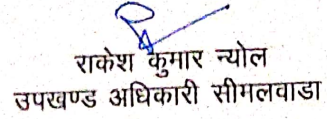 राकेश कुमार न्योल
उपखण्ड अधिकारी सीमलवाडा